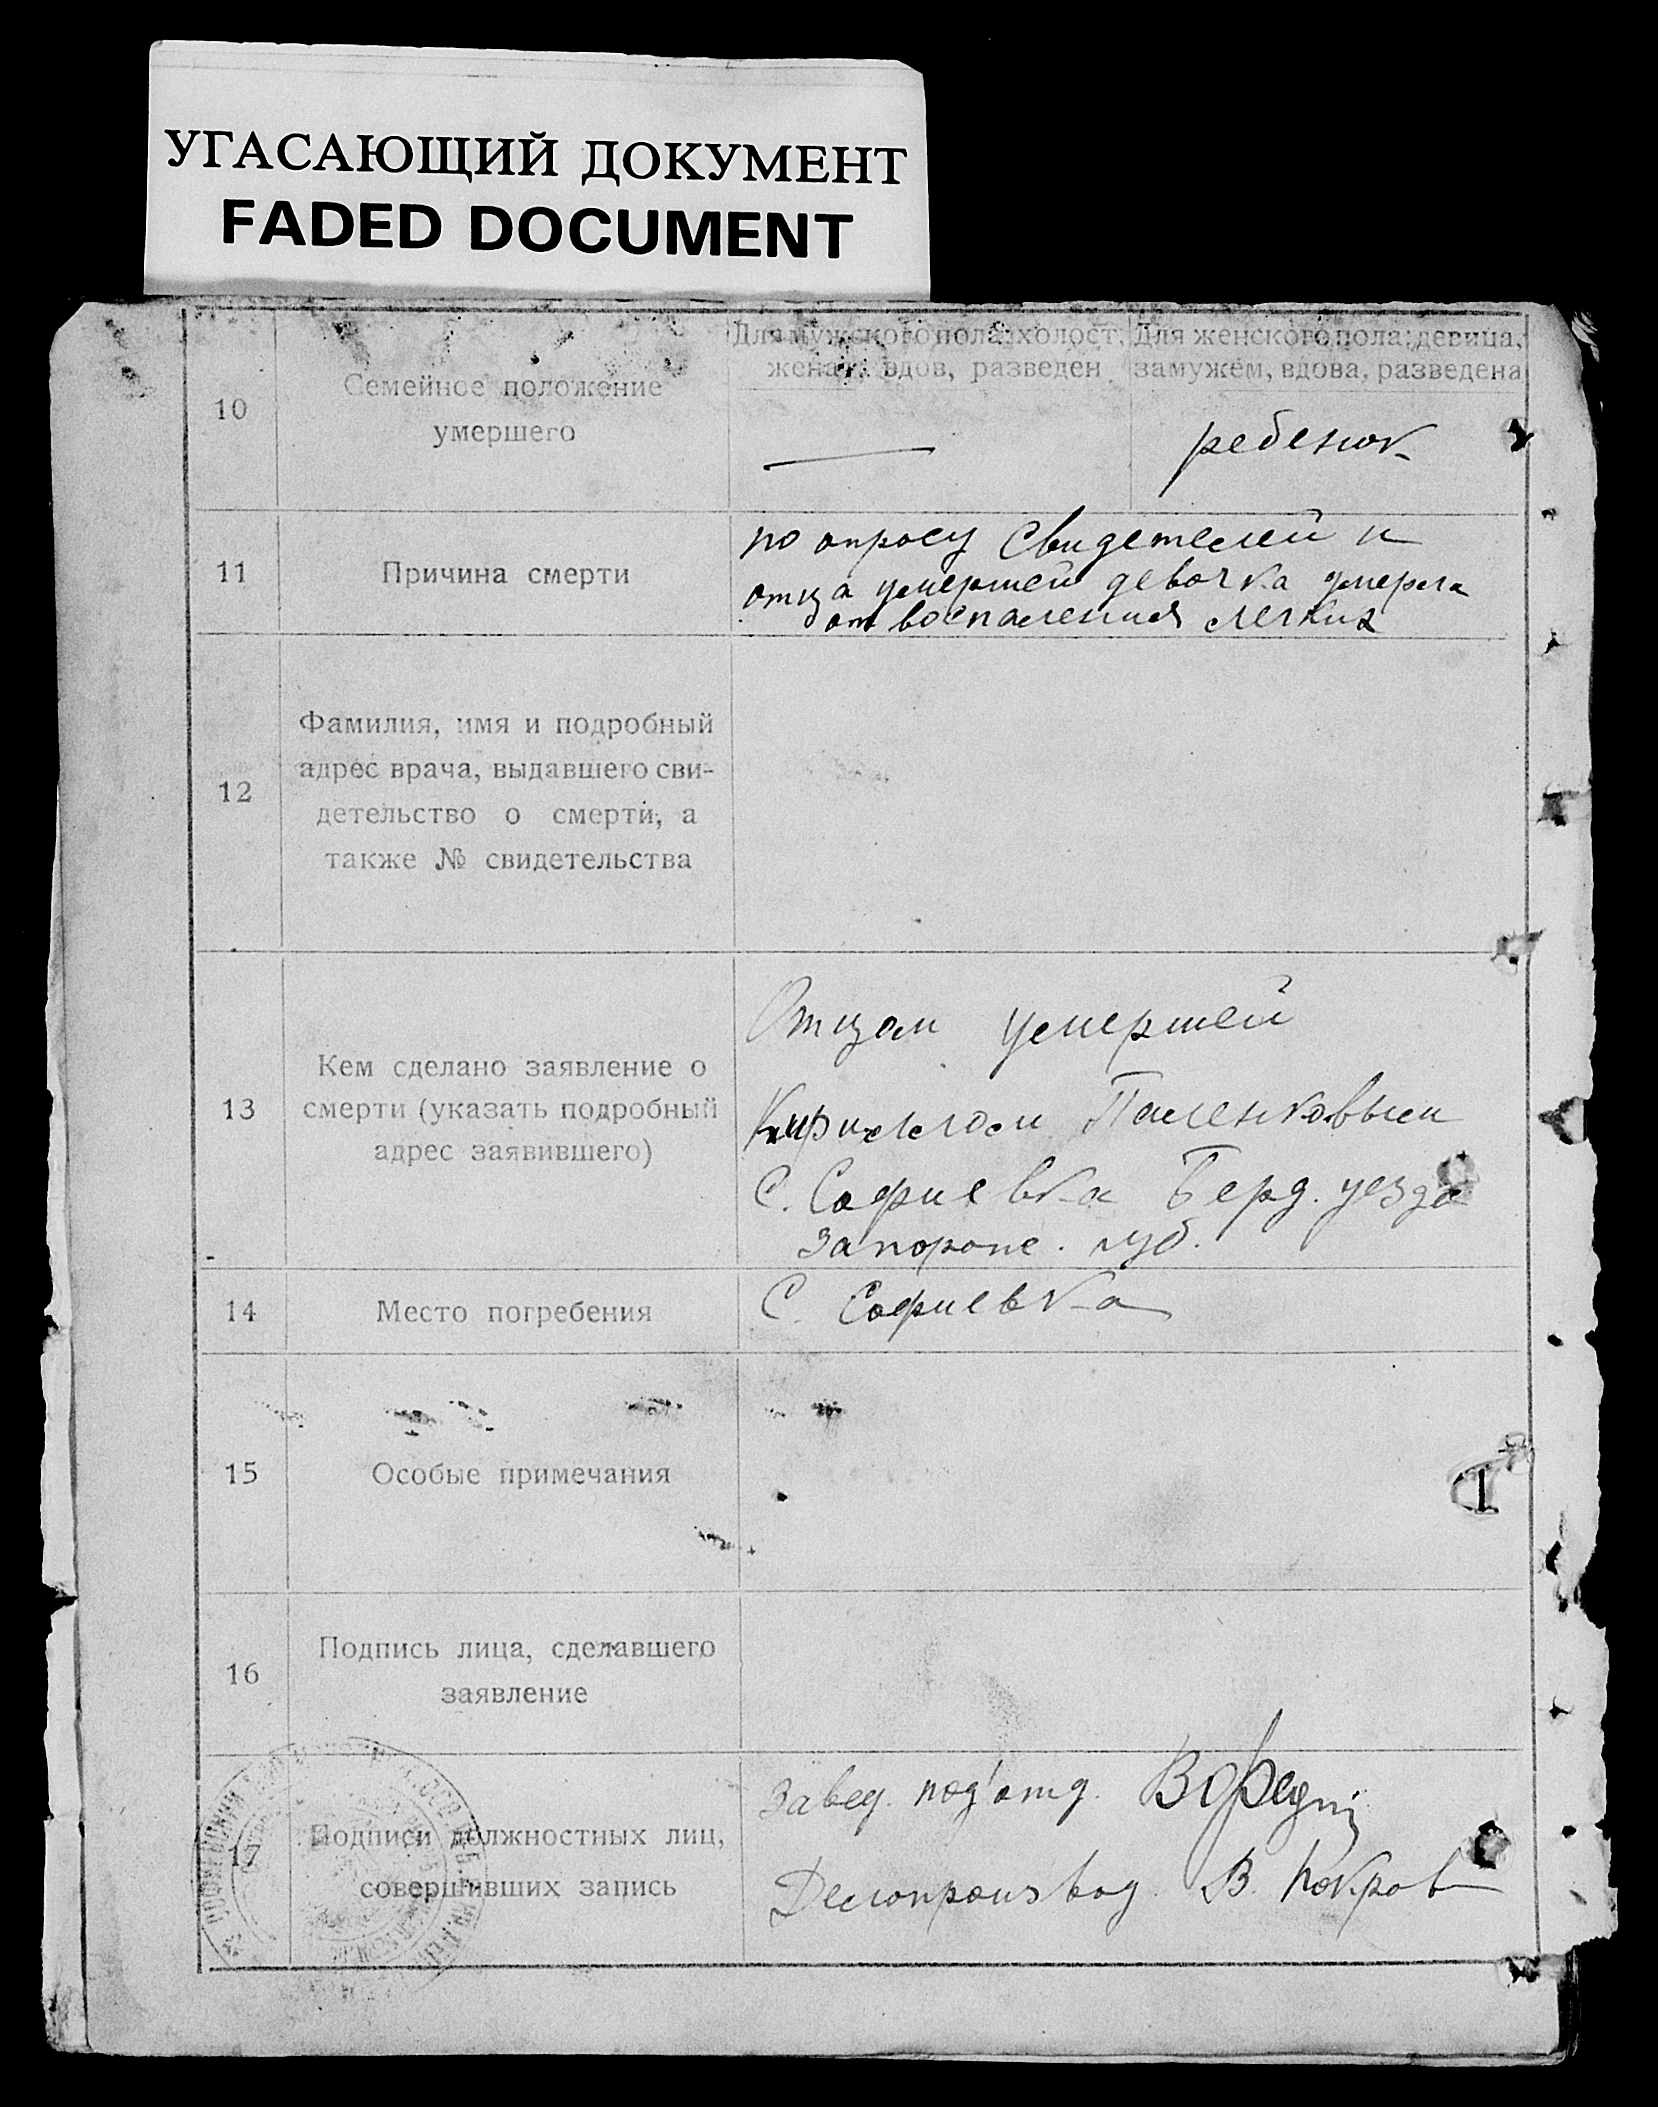 УГАСАЮЩИЙ ДОКУМЕНТ
FADED DOCUMENT
10
Семейное положение
умершего
Для мужского пола: холост,
женат, вдов, разведен
Для женского пола: девица,
замужем, вдова, разведена
ребенок
11
Причина смерти
по опросу свидетелей и
отца умершей девочка умерла
от воспаления легких
12
Фамилия, имя и подробный
адрес врача, выдавшего сви-
детельство о смерти, а
также № свидетельства
13
Кем сделано заявление о
смерти (указать подробный
адрес заявившего)
Отцом умершей
Кириллом Паленковым
С. Софиевка Берд. уезда
Запорож. губ.
14
Место погребения
С. Софиевка
15
Особые примечания
16
Подпись лица, сделавшего
заявление
17
Подписи должностных лиц,
совершивших запись
Завед. под'отд.
Делопроизвод. В. Покров